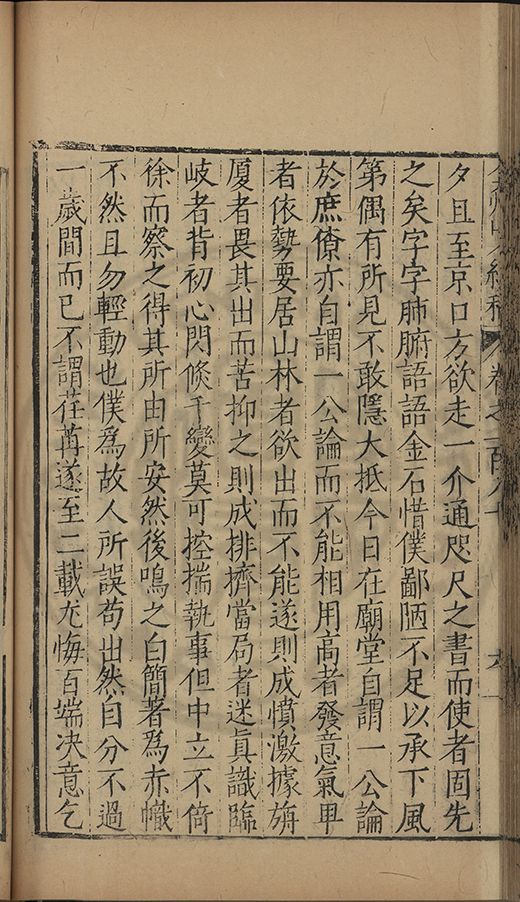 夕且至京口方欲走一介通咫尺之書而使者固先
之矣字字肺腑語語金石惜僕鄙陋不足以承下風
第偶有所見不敢隱大抵今日在廟堂自謂一公論
於庶僚亦自謂一公論而不能相用高者發意氣卑
者依勢要居山林者欲出而不能遂則成憤激據旃
厦者畏其出而苦抑之則成排擠當局者迷眞識臨
岐者背初心閃倐千變莫可控揣執事但中立不倚
徐而察之得其所由所安然後鳴之白簡著為赤幟
不然且勿輕動也僕為故人所誤苟出然自分不過
一歲間而已不謂荏苒遂至二載尤悔百端决意乞